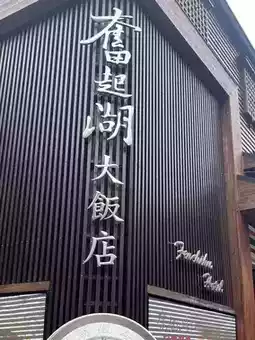 奮起湖大飯店
Fenchihu
Hotel